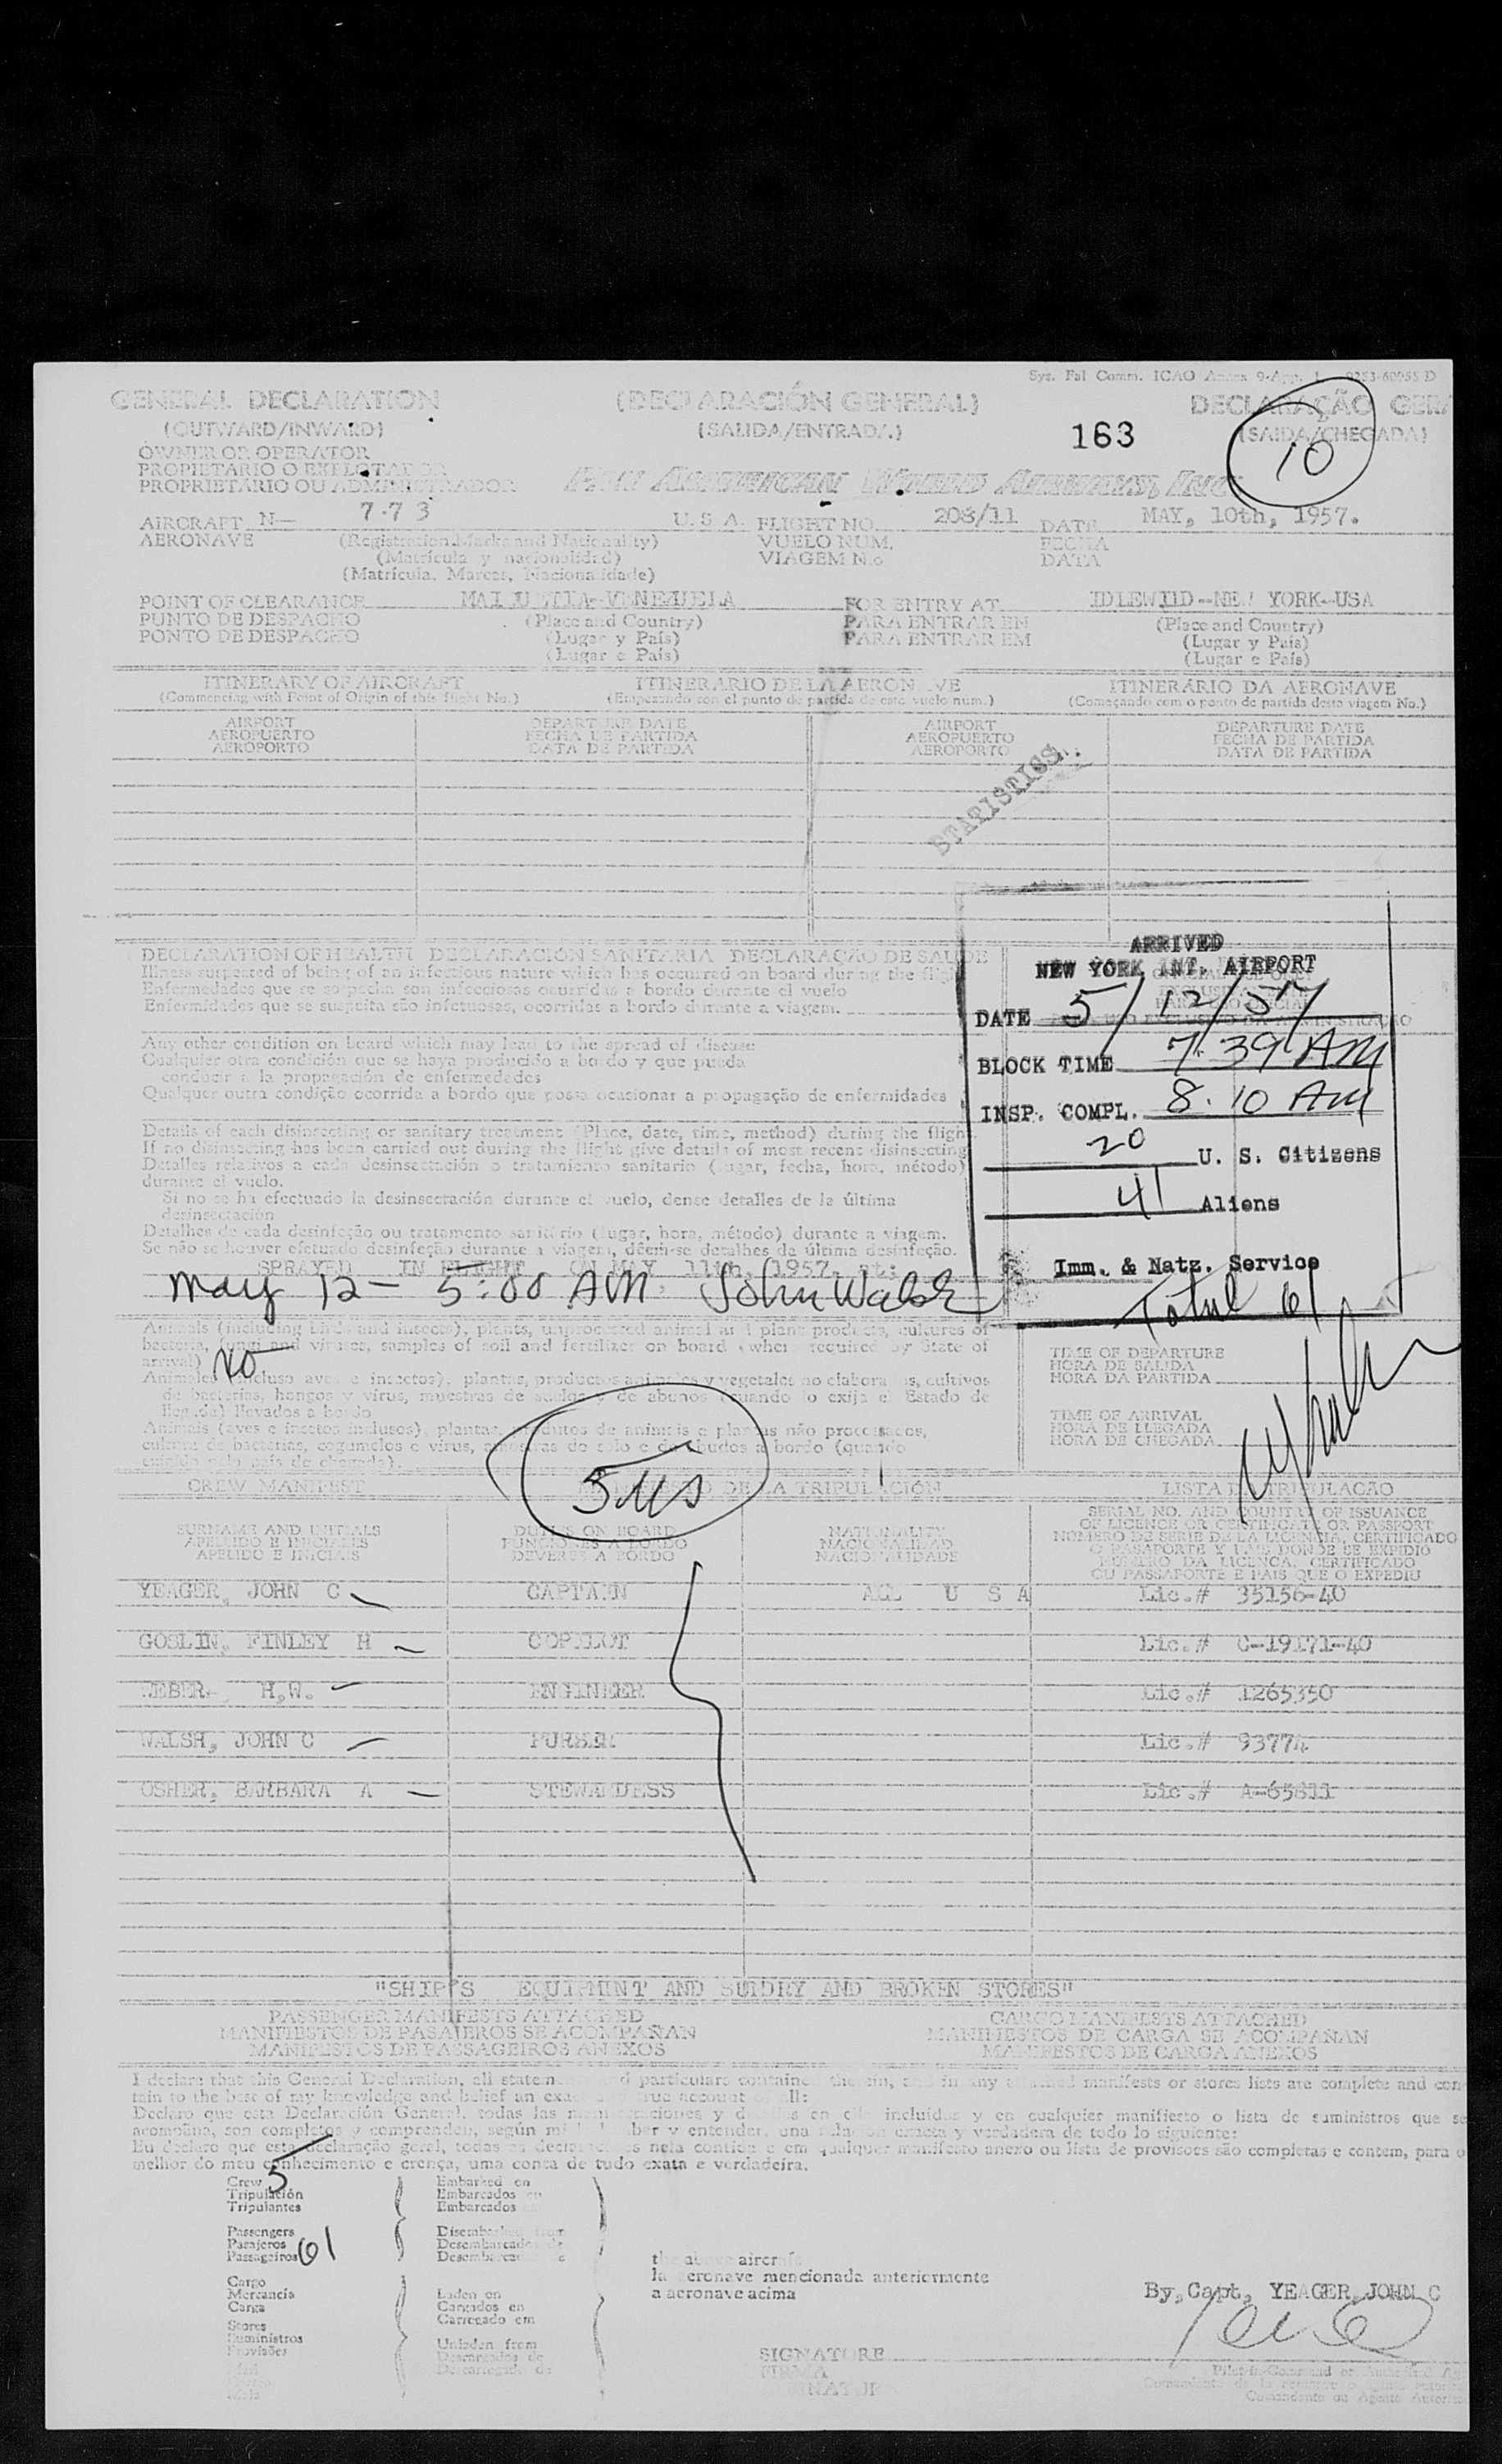 Sys. Fal Comm. ICAO Annex 9-App. 1 0253-60955 D
GENERAL DECLARATION (DECLARACIÓN GENERAL) DECLARAÇÃO GERA
(OUTWARD/INWARD) (SALIDA/ENTRADA) 163 (SAIDA/CHEGADA)
10
OWNER OR OPERATOR
PROPIETARIO O EXPLOTADOR
PROPRIETÁRIO OU ADMINISTRADOR PAN AMERICAN WORLD AIRWAYS, INC
AIRCRAFT N— 7-73 U. S. A. FLIGHT NO. 208/11 DATE MAY, 10th, 1957.
AERONAVE (Registration Marks and Nationality) VUELO NUM. FECHA
(Matrícula y nacionalidad) VIAGEM N.o DATA
(Matrícula, Marcas, Nacionalidade)
POINT OF CLEARANCE MAIQUETIA-VENEZUELA FOR ENTRY AT IDLEWILD-NEW YORK-USA
PUNTO DE DESPACHO (Place and Country) PARA ENTRAR EN (Place and Country)
PONTO DE DESPACHO (Lugar y País) PARA ENTRAR EM (Lugar y País)
(Lugar e País) (Lugar e País)
ITINERARY OF AIRCRAFT ITINERARIO DE LA AERONAVE ITINERÁRIO DA AERONAVE
(Commencing with Point of Origin of this flight No.) (Empezando con el punto de partida de este vuelo num.) (Começando com o ponto de partida desta viagem No.)
AIRPORT DEPARTURE DATE AIRPORT DEPARTURE DATE
AEROPUERTO FECHA DE PARTIDA AEROPUERTO FECHA DE PARTIDA
AEROPORTO DATA DE PARTIDA AEROPORTO DATA DE PARTIDA
STATISTICS
DECLARATION OF HEALTH DECLARACIÓN SANITARIA DECLARAÇÃO DE SAUDE
Illness suspected of being of an infectious nature which has occurred on board during the flight
Enfermedades que se sospecha son infecciosas ocurridas a bordo durante el vuelo
Enfermidades que se suspeita são infectuosas, ocorridas a bordo durante a viagem.
Any other condition on board which may lead to the spread of disease
Cualquier otra condición que se haya producido a bordo y que pueda
conducir a la propagación de enfermedades
Qualquer outra condição ocorrida a bordo que possa ocasionar a propagação de enfermidades
Details of each disinsecting or sanitary treatment (Place, date, time, method) during the flight
If no disinsecting has been carried out during the flight give details of most recent disinsecting
Detalles relativos a cada desinsectación o tratamiento sanitario (lugar, fecha, hora, método)
durante el vuelo.
Si no se ha efectuado la desinsectación durante el vuelo, dense detalles de la última
desinsectación
Detalhes de cada desinfeção ou tratamento sanitário (lugar, hora, método) durante a viagem.
Se não se houver efetuado desinfeção durante a viagem, dêem-se detalhes da última desinfeção.
SPRAYED IN FLIGHT ON MAY 11th, 1957. at:
May 12 - 5:00 AM. John Walsh
ARRIVED
NEW YORK INT. AIRPORT
DATE 5/12/57
BLOCK TIME 7:39 AM
INSP. COMPL. 8.10 AM
20 U. S. Citizens
41 Aliens
Imm. & Natz. Service
Total 61
Animals (including birds and insects), plants, unprocessed animal and plant products, cultures of
bacteria, fungi and viruses, samples of soil and fertilizer on board (when required by State of
arrival) NO
Animales (incluso aves e insectos), plantas, productos animales y vegetales no elaborados, cultivos
de bacterias, hongos y virus, muestras de suelos y de abonos (cuando lo exija el Estado de
llegada) llevados a bordo
Animais (aves e insetos inclusos), plantas, produtos de animais e plantas não processados,
cultura de bacterias, cogumelos e virus, amostras de solo e de adubos a bordo (quando
exigido pelo país de chegada).
TIME OF DEPARTURE
HORA DE SALIDA
HORA DA PARTIDA
TIME OF ARRIVAL
HORA DE LLEGADA
HORA DE CHEGADA
5 US
CREW MANIFEST DE LA TRIPULACIÓN LISTA DE TRIPULAÇÃO
SURNAME AND INITIALS DUTIES ON BOARD NATIONALITY SERIAL NO. AND COUNTRY OF ISSUANCE
APELLIDO E INICIALES FUNCIONES A BORDO NACIONALIDAD OF LICENCE OR CERTIFICATE OR PASSPORT
APELIDO E INICIAIS DEVERES A BORDO NACIONALIDADE NÚMERO DE SERIE DE LA LICENCIA, CERTIFICADO
O PASAPORTE Y PAIS DONDE SE EXPIDIÓ
NÚMERO DA LICENÇA, CERTIFICADO
OU PASSAPORTE E PAIS QUE O EXPEDIU
YEAGER, JOHN C CAPTAIN ALL U S A Lic.# 35156-40
GOSLIN, FINLEY H COPILOT Lic.# C-19171-40
WEBER- H,W. ENGINEER Lic.# 1265350
WALSH, JOHN C PURSER Lic.# 93774
OSHER, BARBARA A STEWARDESS Lic.# A-65811
"SHIP'S EQUIPMINT AND SUNDRY AND BROKEN STORES"
PASSENGER MANIFESTS ATTACHED CARGO MANIFESTS ATTACHED
MANIFIESTOS DE PASAJEROS SE ACOMPAÑAN MANIFIESTOS DE CARGA SE ACOMPAÑAN
MANIFESTOS DE PASSAGEIROS ANEXOS MANIFESTOS DE CARGA ANEXOS
I declare that this General Declaration, all statem d particulars contained therein, and in any attached manifests or stores lists are complete and con
tain to the best of my knowledge and belief an exact and true account of all:
Declaro que esta Declaración General, todas las manifestaciones y detalles en ella incluídos y en cualquier manifiesto o lista de suministros que se
acompaña, son completos y comprenden, según mi saber y entender, una relación exacta y verdadera de todo lo siguiente:
Eu declaro que esta declaração geral, todas as declarações nela contida e em qualquer manifesto anexo ou lista de provisões são completas e contem, para o
melhor do meu conhecimento e crença, uma conta de tudo exata e verdadeira.
Crew 5 Embarked on
Tripulación Embarcados en
Tripulantes Embarcados
Passengers Disembarked from
Pasajeros Desembarcados de
Passageiros 61 Desembarcados de the above aircraft
la aeronave mencionada anteriormente
Cargo a aeronave acima
Mercancía Laden on
Carga Cargados en
Stores Carregado em
Suministros
Provisões Unladen from
Descargados de
Descarregado de
By, Capt, YEAGER, JOHN C
SIGNATURE
FIRMA
Pilot-in-Command or Authorized Ag
Comandante ou Agente Autoriz